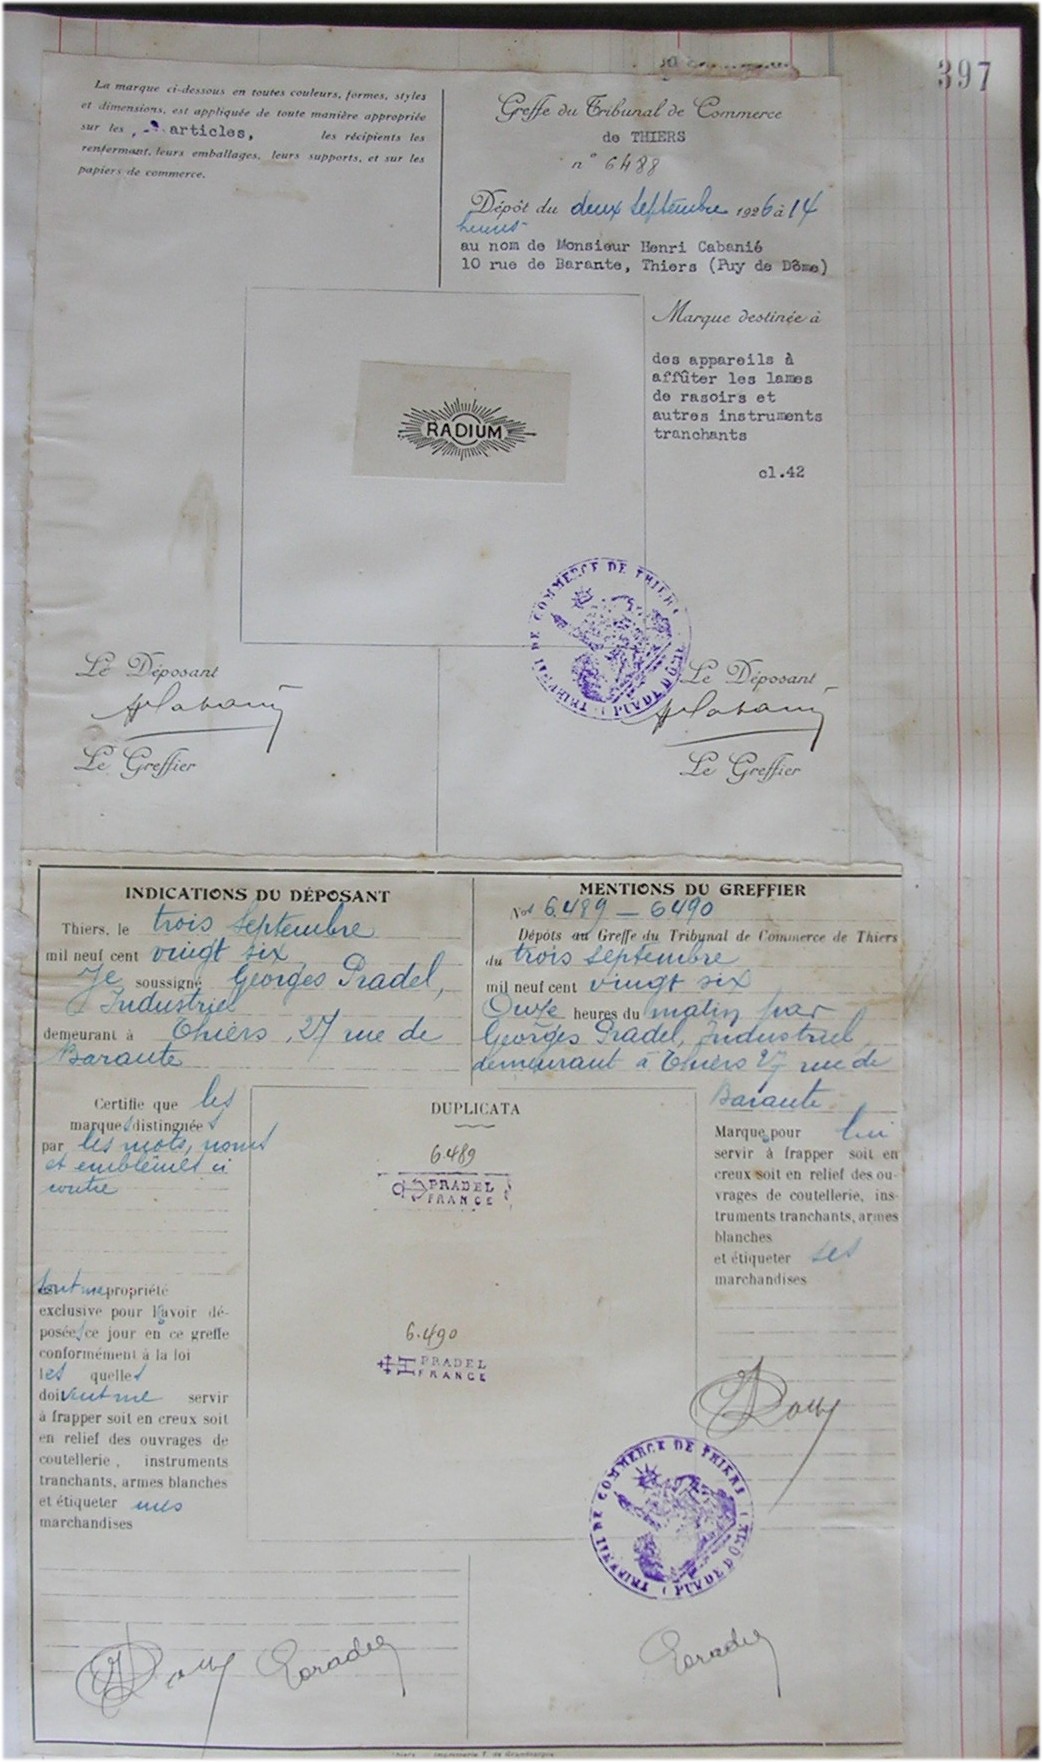 397
La marque ci-dessous en toutes couleurs, formes, styles
et dimensions, est appliquée de toute manière appropriée
sur les articles, les récipients les
renfermant, leurs emballages, leurs supports, et sur les
papiers de commerce.
Greffe du Tribunal de Commerce
de THIERS
n° 6488
Dépôt du deux Septembre 1926 à 14
heures
au nom de Monsieur Henri Cabanié
10 rue de Barante, Thiers (Puy de Dôme)
Marque destinée à
des appareils à
affûter les lames
de rasoirs et
autres instruments
tranchants
cl.42
RADIUM
TRIBUNAL DE COMMERCE DE THIERS (PUY DE DOME)
Le Déposant
Le Greffier
Le Déposant
Le Greffier
INDICATIONS DU DÉPOSANT
Thiers, le trois Septembre
mil neuf cent vingt six
Je soussigné Georges Pradel,
Industriel
demeurant à Thiers, 27 rue de
Barante
Certifie que les
marques distinguées
par les mots, noms
et emblèmes ci
contre
sont ma propriété
exclusive pour l'avoir dé-
posées ce jour en ce greffe
conformément à la loi
les quelles
doivent me servir
à frapper soit en creux soit
en relief des ouvrages de
coutellerie, instruments
tranchants, armes blanches
et étiqueter mes
marchandises
MENTIONS DU GREFFIER
Nos 6489 — 6490
Dépôts au Greffe du Tribunal de Commerce de Thiers
du trois Septembre
mil neuf cent vingt six
Onze heures du matin par
Georges Pradel, Industriel
demeurant à Thiers 27 rue de
Barante
DUPLICATA
6489
PRADEL
FRANCE
6.490
PRADEL
FRANCE
Marque pour lui
servir à frapper soit en
creux soit en relief des ou-
vrages de coutellerie, ins-
truments tranchants, armes
blanches
et étiqueter ses
marchandises
TRIBUNAL DE COMMERCE DE THIERS (PUY DE DOME)